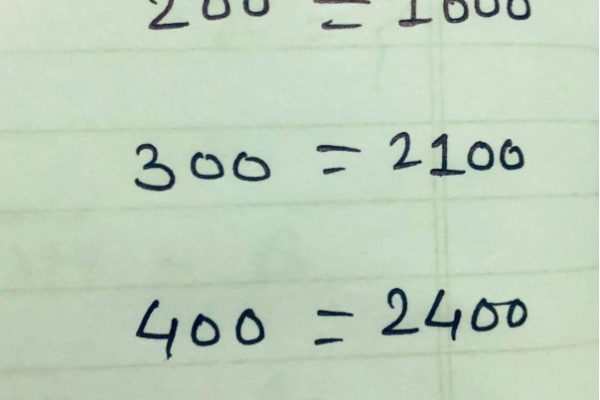 200 =
300 = 2100
400 = 2400